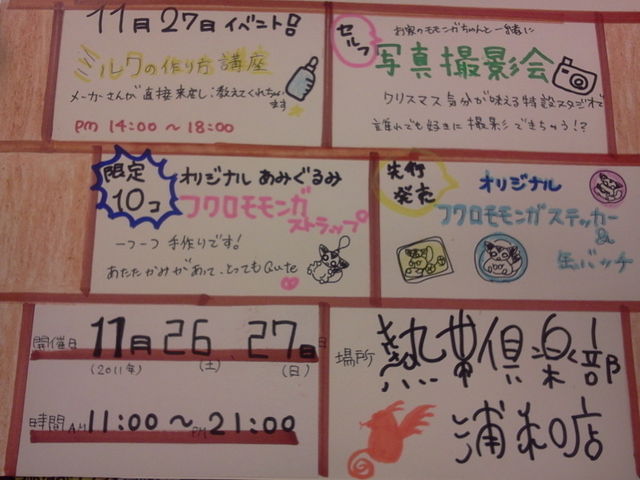 11月27日イベント
ミルクの作り方講座
メーカーさんが直接来店し、教えてくれちゃい
ます
PM 14:00～18:00
セルフ
お家のモモンガちゃんと一緒に
写真撮影会
クリスマス気分が味える特設スタジオで
誰れでも好きに撮影できちゃう!?
限定
10コ
オリジナル あみぐるみ
フクロモモンガ
ストラップ
一つ一つ手作りです!
あたたかみがあって、とってもCute
先行
発売
オリジナル
フクロモモンガステッカー
&
缶バッチ
開催日 11月26 27日
(2011年) (土) (日)
時間 AM 11:00～PM 21:00
場所 熱帯倶楽部
浦和店